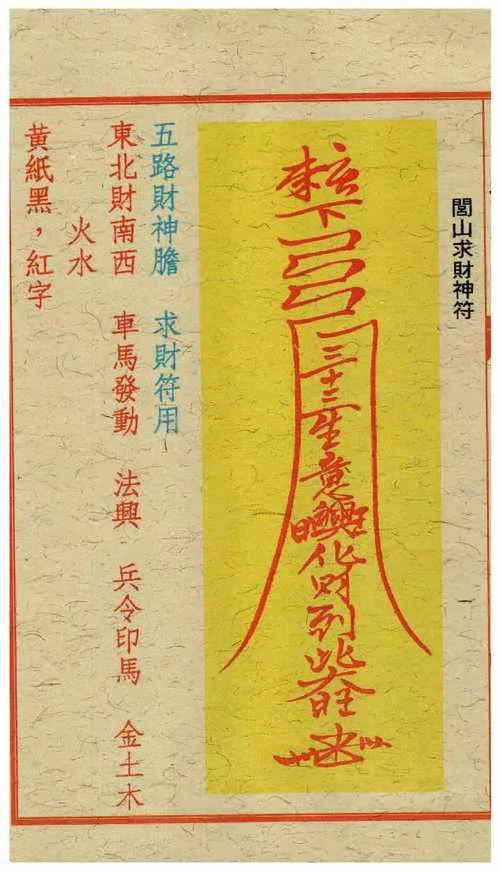 閭山求財神符
下
三十三生意興
化財到此
五路財神膽 求財符用
東北財南西 車馬發動 法興 兵令印馬 金土木
火水
黃紙黑,紅字